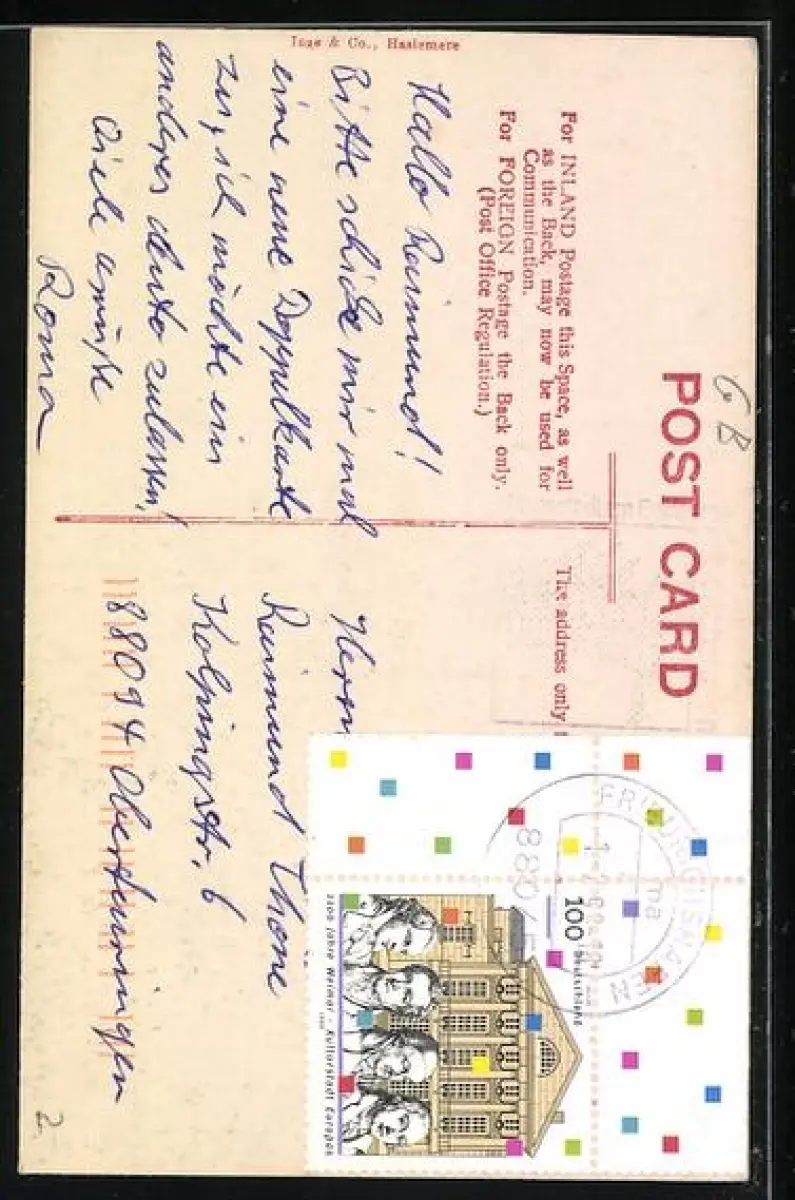 Inge & Co., Haslemere
GB
POST CARD
For INLAND Postage this Space, as well
as the Back, may now be used for
Communication.
For FOREIGN Postage the Back only.
(Post Office Regulation.)
The address only
Hallo Raimund!
Bitte schicke mir mal
eine neue Doppelkarte
zu, ich möchte ein
anderes Auto zulassen!
Viele Grüße
Roma
Herrn
Raimund Thone
Kolpingstr. 6
88094 Oberteuringen
100
Deutschland
1100 Jahre Weimar - Kulturstadt Europas
1999
FRIEDRICHSHAFEN
ma
8804
2